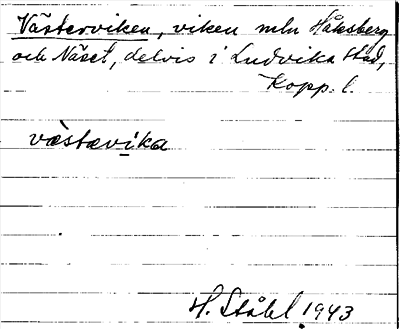 Västerviken, viken mln Håksberg
och Näset, delvis i Ludvika stad,
Kopp. l.
västævika
H. Ståhl 1943